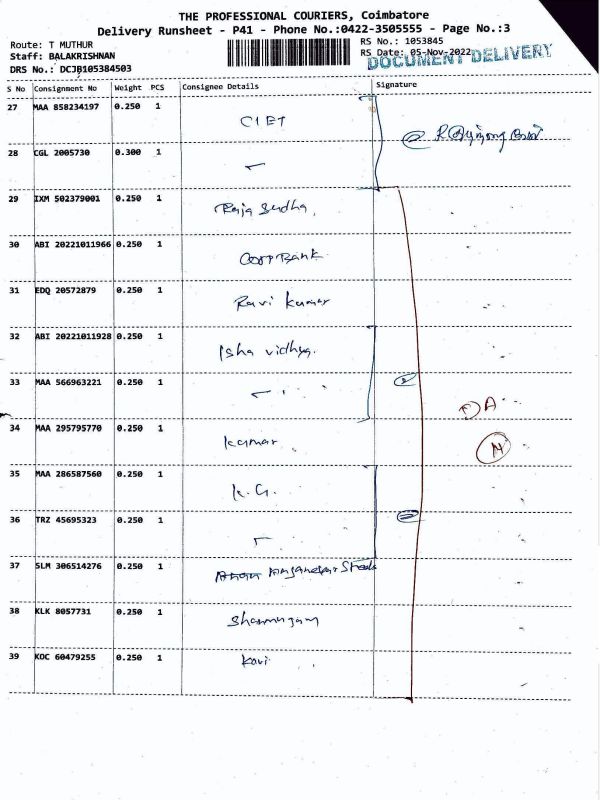 THE PROFESSIONAL COURIERS, Coimbatore
Delivery Runsheet - P41 - Phone No.:0422-3505555 - Page No.:3
Route: T MUTHUR
RS No.: 1053845
Staff: BALAKRISHNAN
RS Date: 05-Nov-2022
DOCUMENT DELIVERY
DRS No.: DCJB105384503
S No Consignment No Weight PCS Consignee Details Signature
27 MAA 858234197 0.250 1 CIET
28 CGL 2005730 0.300 1
29 IXM 502379001 0.250 1 Raja Sudha
30 ABI 20221011966 0.250 1 Corp Bank
31 EDQ 20572879 0.250 1 Ravi kumar
32 ABI 20221011928 0.250 1 Isha vidhya.
33 MAA 566963221 0.250 1
34 MAA 295795770 0.250 1 kumar
35 MAA 286587560 0.250 1 K.G.
36 TRZ 45695323 0.250 1
37 SLM 306514276 0.250 1
38 KLK 8057731 0.250 1 Shanmugam
39 KOC 60479255 0.250 1 Kavi